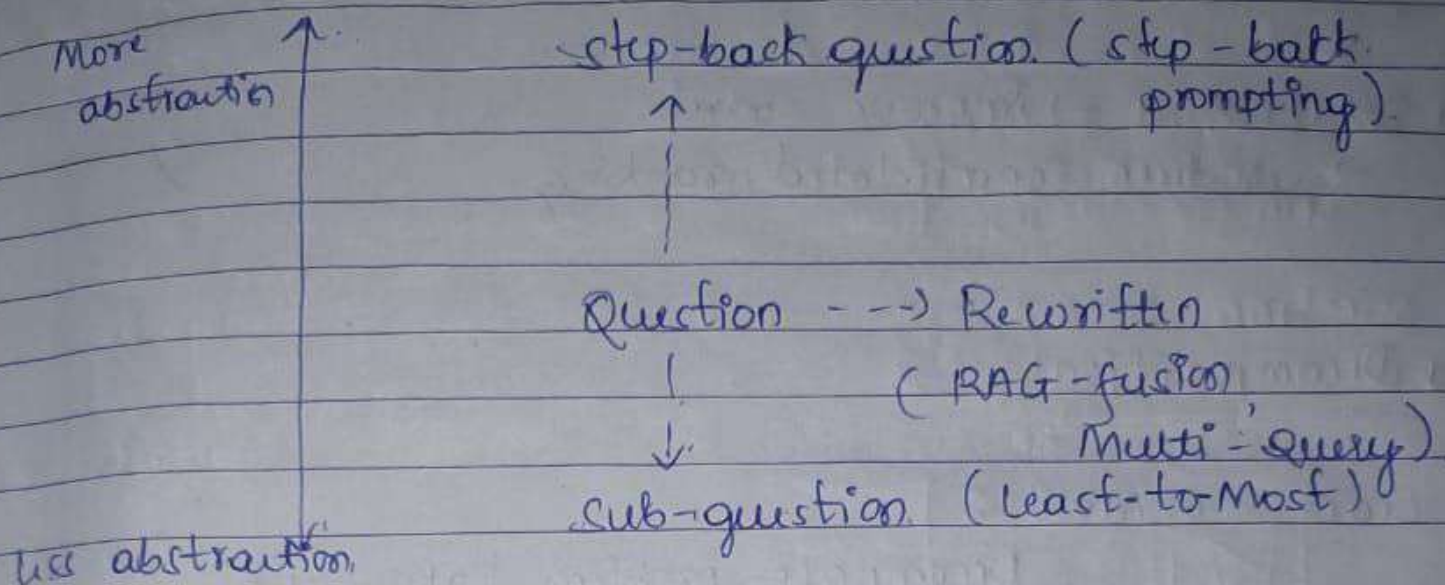 More
abstraction
step-back question. (step-back
prompting).
Question ---> Rewritten
(RAG-fusion,
Multi-Query)
sub-question (Least-to-Most)
less abstraction.